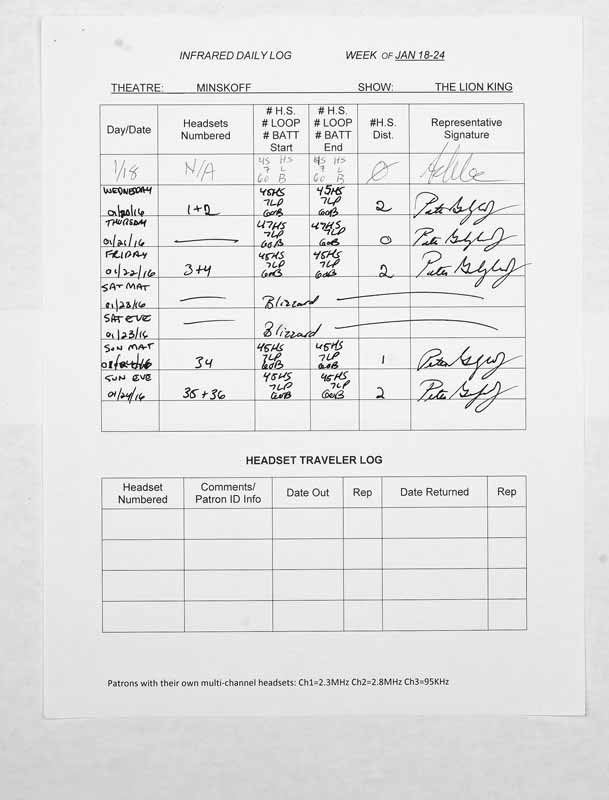 INFRARED DAILY LOG WEEK OF JAN 18-24
THEATRE: MINSKOFF SHOW: THE LION KING
Day/Date
Headsets
Numbered
# H.S.
# LOOP
# BATT
Start
# H.S.
# LOOP
# BATT
End
#H.S.
Dist.
Representative
Signature
1/18
N/A
45 HS
7 L
60 B
45 HS
7 L
60 B
0
WEDNESDAY
01/20/16
1+2
45HS
7LP
60B
45HS
7LP
60B
2
Peter
THURSDAY
01/21/16
47HS
7LP
60B
47HS
7LP
60B
0
Peter
FRIDAY
01/22/16
3+4
45HS
7LP
60B
45HS
7LP
60B
2
Peter
SAT MAT
01/23/16
Blizzard
SAT EVE
01/23/16
Blizzard
SUN MAT
34
45HS
7LP
60B
45HS
7LP
60B
1
Peter
SUN EVE
01/24/16
35+36
45HS
7LP
60B
45HS
7LP
60B
2
Peter
HEADSET TRAVELER LOG
Headset
Numbered
Comments/
Patron ID Info
Date Out
Rep
Date Returned
Rep
Patrons with their own multi-channel headsets: Ch1=2.3MHz Ch2=2.8MHz Ch3=95KHz